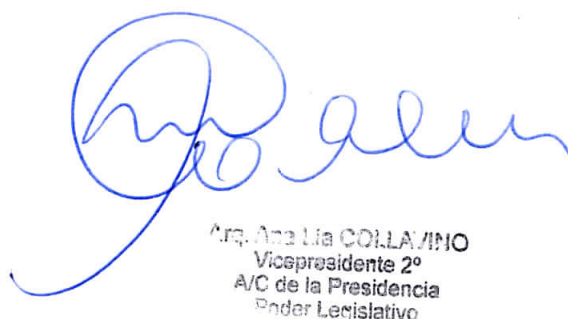 Arq. Ana Lia COLLAVINO
Vicepresidente 2º
A/C de la Presidencia
Poder Legislativo